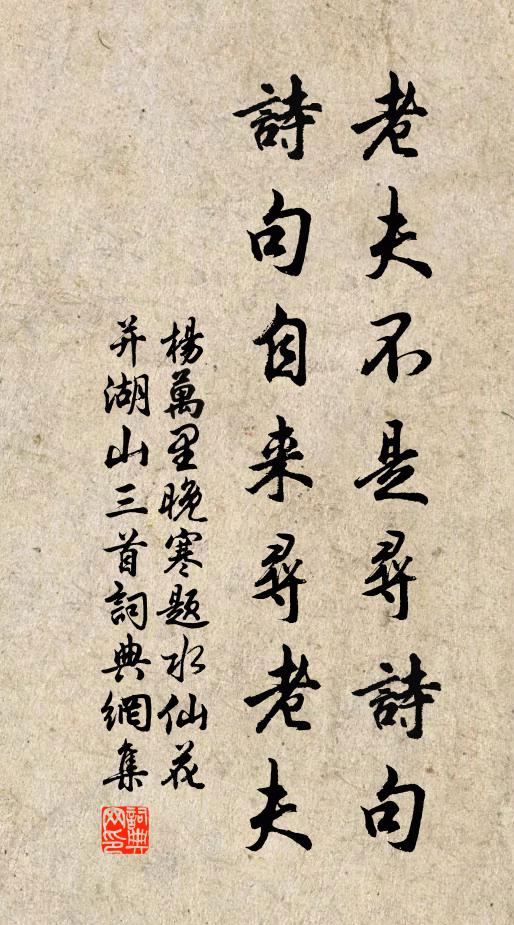 老夫不是尋詩句
詩句自来尋老夫
楊萬里晚寒题水仙花
并湖山三首詞典網集
詞典网印